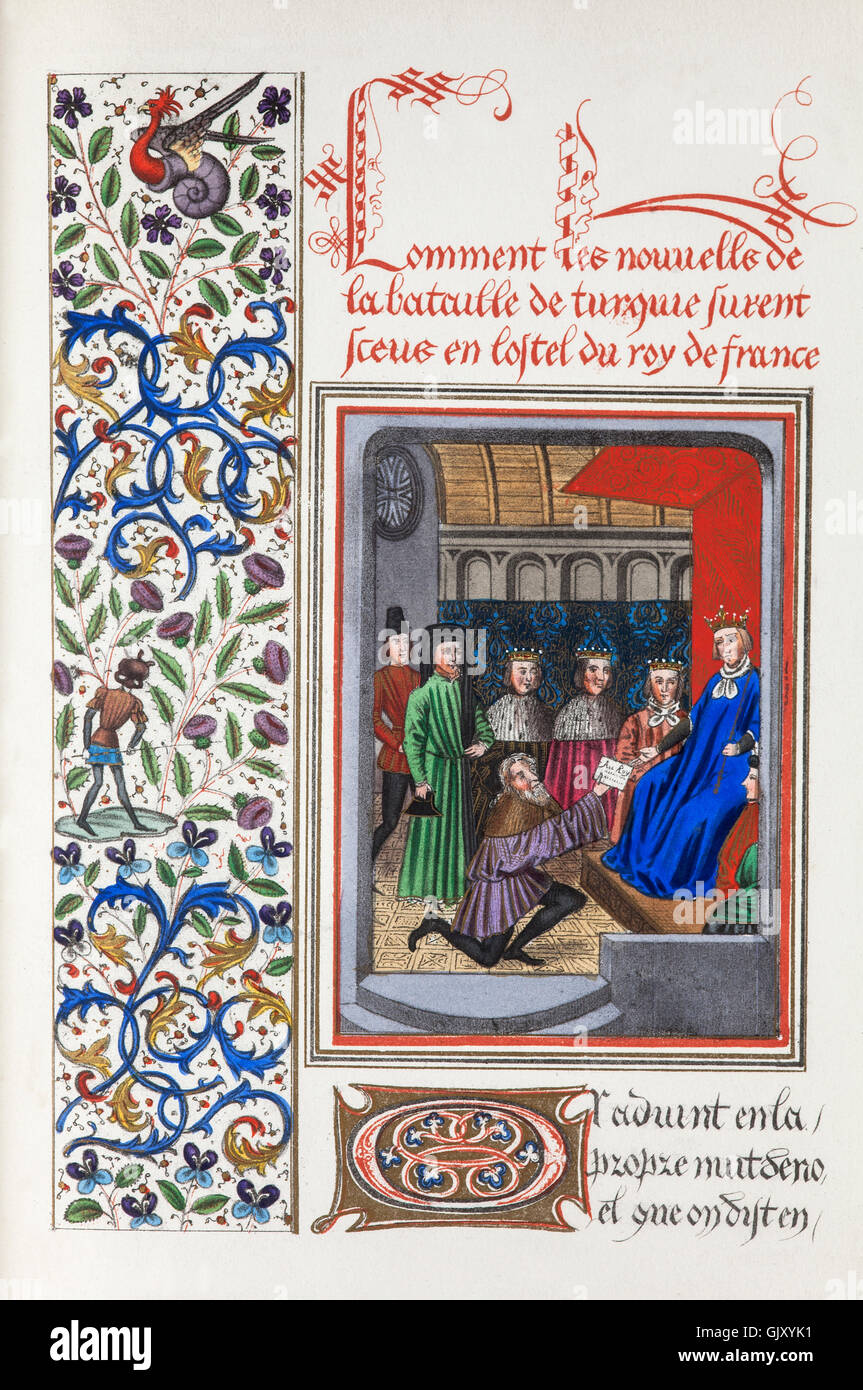 Comment les nouvelles de
la bataille de turquie furent
sceus en lostel du roy de france
Au Roy
Or aduint en la /
propre nuit de no
el que on dist en /
alamy
alamy
Image ID: GJXYK1
www.alamy.com